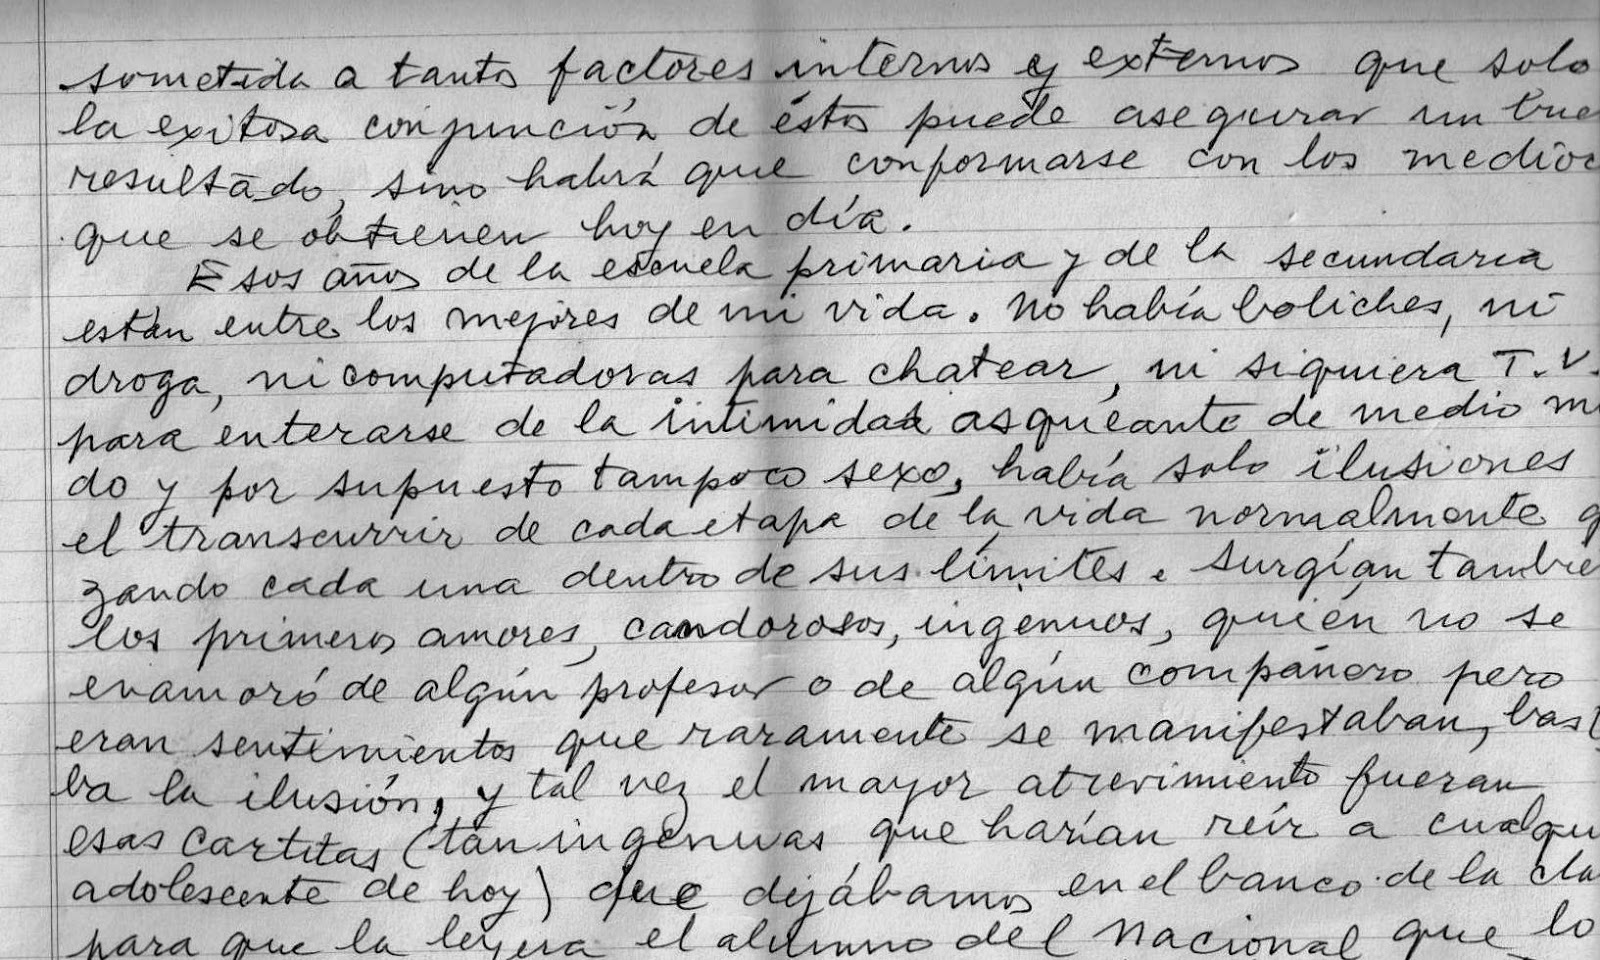 sometida a tantos factores internos y externos que solo
la exitosa conjunción de éstos puede asegurar un bue
resultado, sino habrá que conformarse con los medioc
que se obtienen hoy en día.
Esos años de la escuela primaria y de la secundaria
están entre los mejores de mi vida. No había boliches, ni
droga, ni computadoras para chatear, ni siquiera T.V.
para enterarse de la intimidad asqueante de medio mu
do y por supuesto tampoco sexo, había solo ilusiones
el transcurrir de cada etapa de la vida normalmente g
zando cada una dentro de sus límites. Surgían tambié
los primeros amores, candorosos, ingenuos, quién no se
enamoró de algún profesor o de algún compañero pero
eran sentimientos que raramente se manifestaban, bast
ba la ilusión, y tal vez el mayor atrevimiento fueran
esas cartitas (tan ingenuas que harían reír a cualqu
adolescente de hoy) que dejábamos en el banco de la cla
para que la leyera el alumno del Nacional que lo